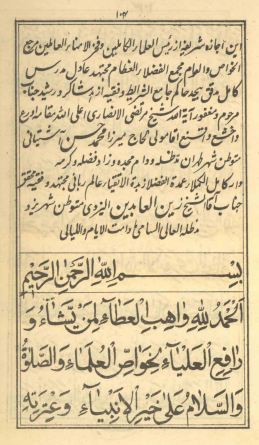 ١٠٤
این اجازه شریفه از رئیس العلماء الکاملین وفخر الامناء العاملین مرجع
الخواص والعوام مجمع الفضلاء العظام مجتهد عادل ومدرس
کامل محقق بحد حاکم جامع الشرایط وفقیه از شاکرد رشید جناب
مرحوم مغفور آیة الله شیخ مرتضی الانصاری اعلی الله مقامه اورع
واخشع وامنع اقا مولی حاج میرزا محمد حسن آشتیانی
متوطن شهر طهران مدظله ودام مجده وزاد فضله وکرمه
واز کامل الکملاء عمدة الفضلاء زبدة الاتقیاء عالم ربانی مجتهد وفقیه محقق
جناب آقا الشیخ زین العابدین الیزدی متوطن شهر یزد
مدظله العالی السامی مادامت الایام واللیالی
بِسْمِ اللهِ الرَّحْمٰنِ الرَّحِيْمِ
اَلْحَمْدُ لِلّٰهِ وَاهِبِ الْعَطَآءِ لِمَنْ يَّشَآءُ وَ
رَافِعِ الْعَلْيَآءِ لِخَوَاصِّ الْعُلَمَآءِ وَالصَّلٰوةُ
وَالسَّلَامُ عَلٰى خَيْرِ الْاَنْبِيَآءِ وَعِتْرَتِهِ